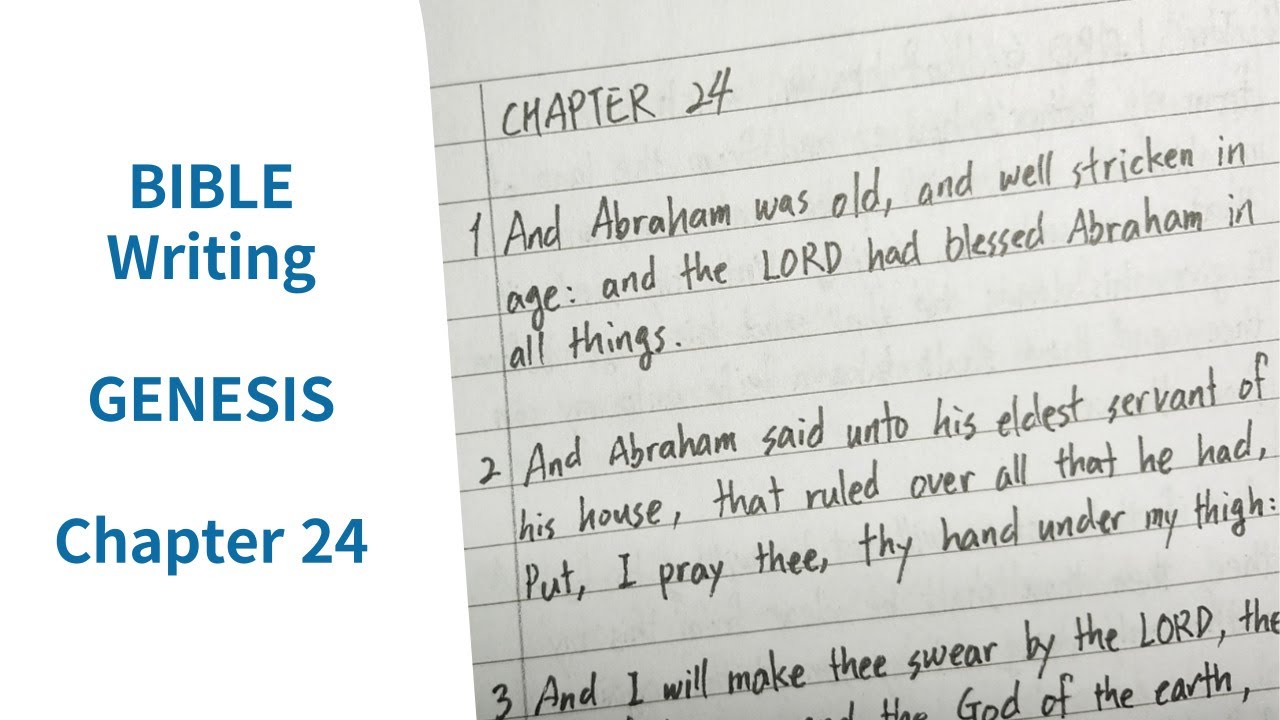 BIBLE
Writing
GENESIS
Chapter 24
CHAPTER 24
1 And Abraham was old, and well stricken in
age: and the LORD had blessed Abraham in
all things.
2 And Abraham said unto his eldest servant of
his house, that ruled over all that he had,
Put, I pray thee, thy hand under my thigh:
3 And I will make thee swear by the LORD, the
God of the earth,